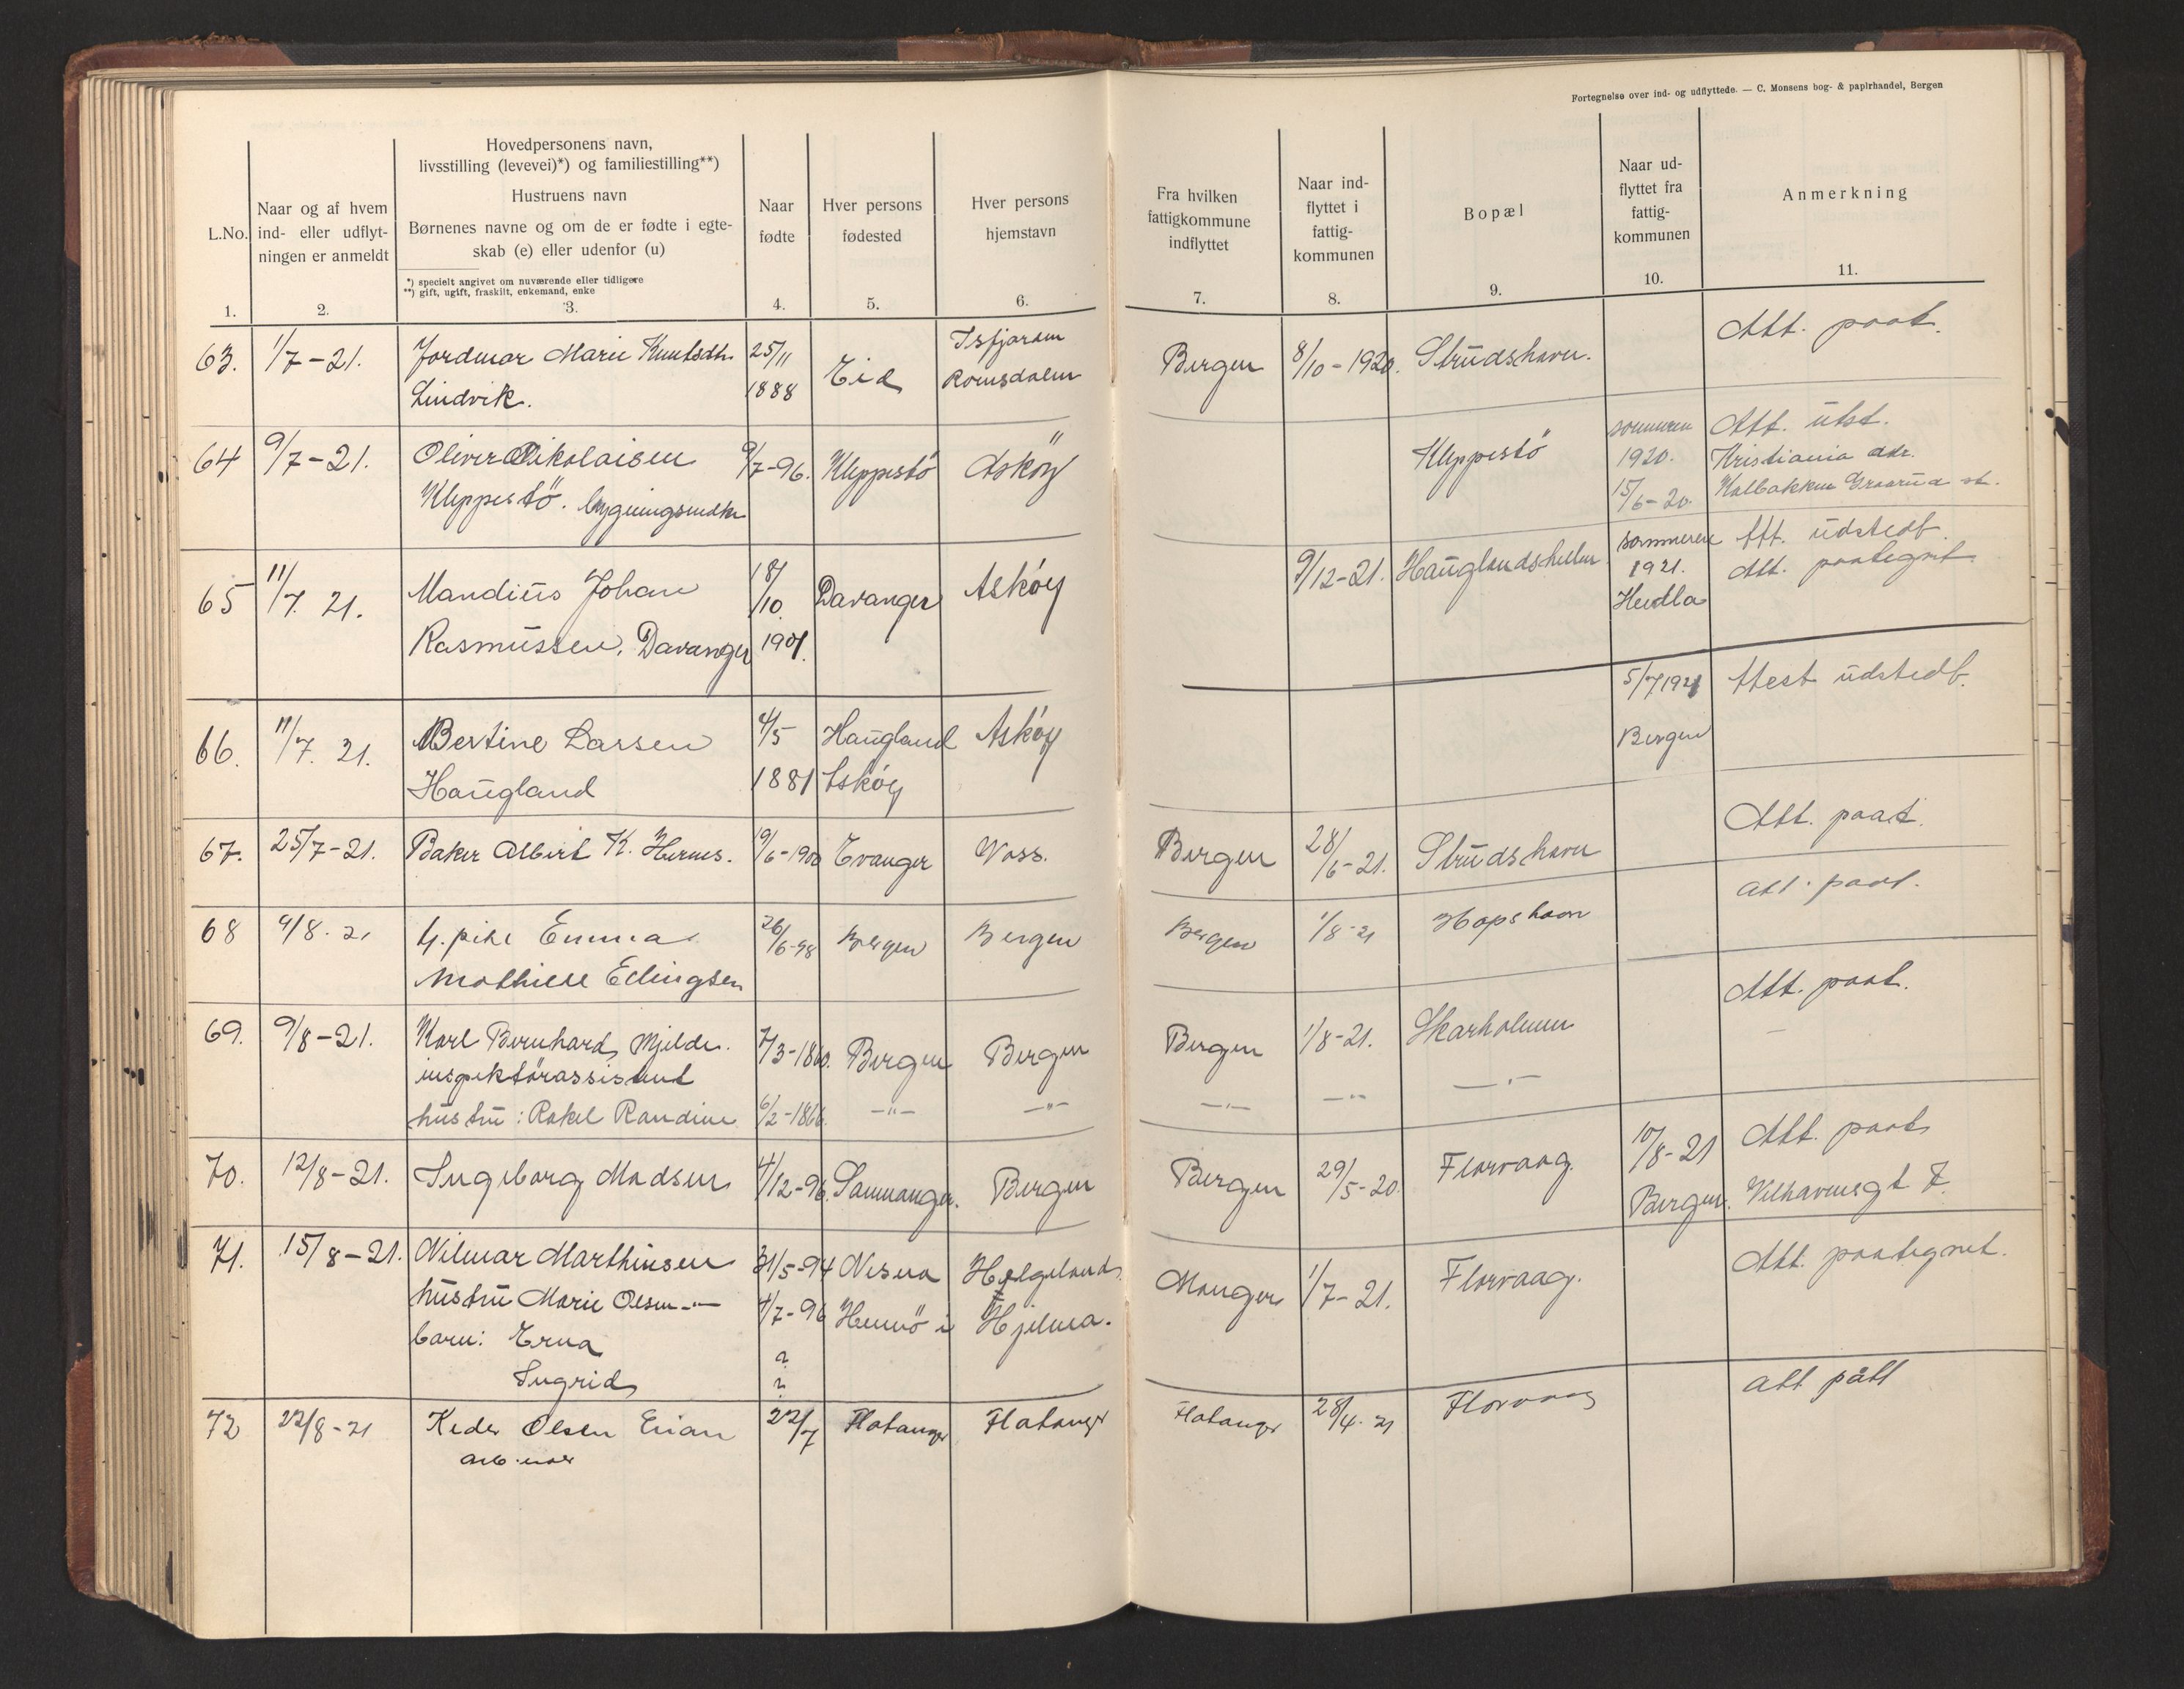 Fortegnelse over ind- og udflyttede. — C. Monsens bog- & papirhandel, Bergen
L.No.
1.
Naar og af hvem
ind- eller udflyt-
ningen er anmeldt
2.
Hovedpersonens navn,
livsstilling (levevei)*) og familiestilling**)
Hustruens navn
Børnenes navne og om de er fødte i egte-
skab (e) eller udenfor (u)
*) specielt angivet om nuværende eller tidligere
**) gift, ugift, fraskilt, enkemand, enke
3.
Naar
fødte
4.
Hver persons
fødested
5.
Hver persons
hjemstavn
6.
Fra hvilken
fattigkommune
indflyttet
7.
Naar ind-
flyttet i
fattig-
kommunen
8.
Bopæl
9.
Naar ud-
flyttet fra
fattig-
kommunen
10.
Anmerkning
11.
63. 1/7-21. Jordmor Marie Knutsdtr. 25/11 Eid Isfjorden Bergen 8/10-1920. Strudshavn. Att. paat.
Lindvik. 1888 Romsdalen
64 9/7-21. Oliver Nikolaisen 9/7-96. Kleppestö Asköy Kleppestö sommeren 1920. 15/6-20. Att. utst.
Kleppestö. bygningssnedker Kristiania adr.
Kalbakken Grorud st.
65 11/7. 21. Mandius Johan 18/10 Davanger Asköy 9/12-21. Hauglandshellen sommeren Att. udstedt.
Rasmussen, Davanger 1901. 1921. Att. paategnet
Herdla
66. 11/7. 21. Bertine Larsen 4/5 Haugland Asköy 5/7 1921 Attest udstedt.
Haugland 1881 Asköy Bergen
67. 25/7-21. Baker Albert K. Hernes. 19/6-1900 Evanger Voss. Bergen 28/6-21. Strudshavn Att. paat.
68 9/8-21 Emma 26/6-98 Bergen Bergen Bergen 1/8-21 Hopshavn Att. paat.
Mathilde Ellingsen
69. 9/8-21. Karl Bernhard Mjelde. 7/3-1860. Bergen Bergen Bergen 1/8-21. Skarholmen Att. paat.
inspektörassistent
hustru: Rakel Randine 6/2-1866. —"— —"— —"— —"— —"—
70. 12/8-21. Ingeborg Madsen 4/12-96. Samnanger. Bergen Bergen 29/5-20. Florvaag. 10/8-21 Att. paat.
Bergen. Velhavensgt 7.
71. 15/8-21. Hilmar Marthinsen 31/5-94 Nesna Helgeland. Manger 1/7-21. Florvaag. Att. paategnet.
hustru Marie Olsen —"— 4/7-96 Hennö i Hjelma.
barn: Erna ?
Ingrid ?
72 22/8-21 Peder Olsen Erian 22/7 Flatanger Flatanger Flatanger 28/4-21 Florvaag att pått